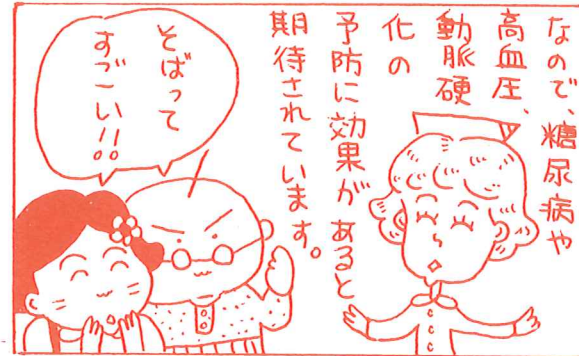 なので、糖尿病や
高血圧、
動脈硬
化の
予防に効果があると
期待されています。
そばって
すごい!!